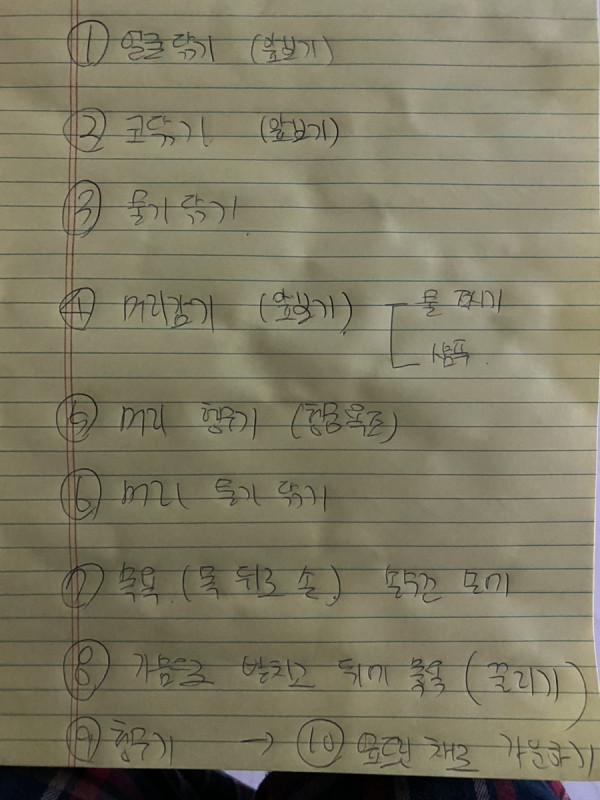 ① 얼굴 닦기 (앞보기)
② 코닦기 (앞보기)
③ 물기 닦기
④ 머리감기 (앞보기) 물 적시기
샴푸
⑤ 머리 헹구기 (헹굼욕조)
⑥ 머리 물기 닦기
⑦ 목욕 (목 뒤로 손) 손수건 모기
⑧ 가슴을 받치고 뒤에 목욕 (끌리기)
⑨ 헹구기 → ⑩ 엎드린 채로 가운하기